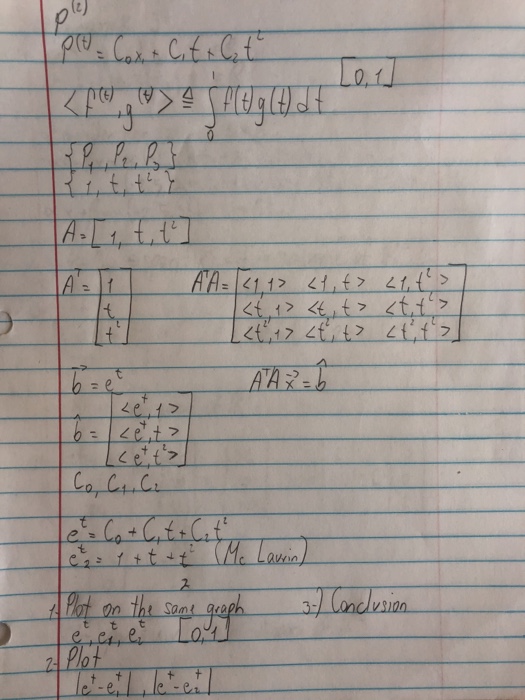 P⁽²⁾
P(t) = C₀x₁ + C₁t + C₂t²
[0,1]
<f(t), g(t)> ≜ ∫₀¹ f(t)g(t)dt
{P₁, P₂, P₃}
{1, t, t²}
A = [1, t, t²]
Aᵀ = [1 t t²] AᵀA = [<1,1> <1,t> <1,t²>
<t,1> <t,t> <t,t²>
<t²,1> <t²,t> <t²,t²>]
b⃗ = eᵗ AᵀA x⃗ = b̂
b̂ = [<eᵗ,1>
<eᵗ,t>
<eᵗ,t²>]
C₀, C₁, C₂
eᵗ = C₀ + C₁t + C₂t²
e₂ᵗ = 1 + t + t²/2 (Mc Laurin)
1-) Plot on the same graph 3-) Conclusion
eᵗ, e₁ᵗ, e₂ᵗ [0,1]
2- Plot
|eᵗ-e₁ᵗ|, |eᵗ-e₂ᵗ|